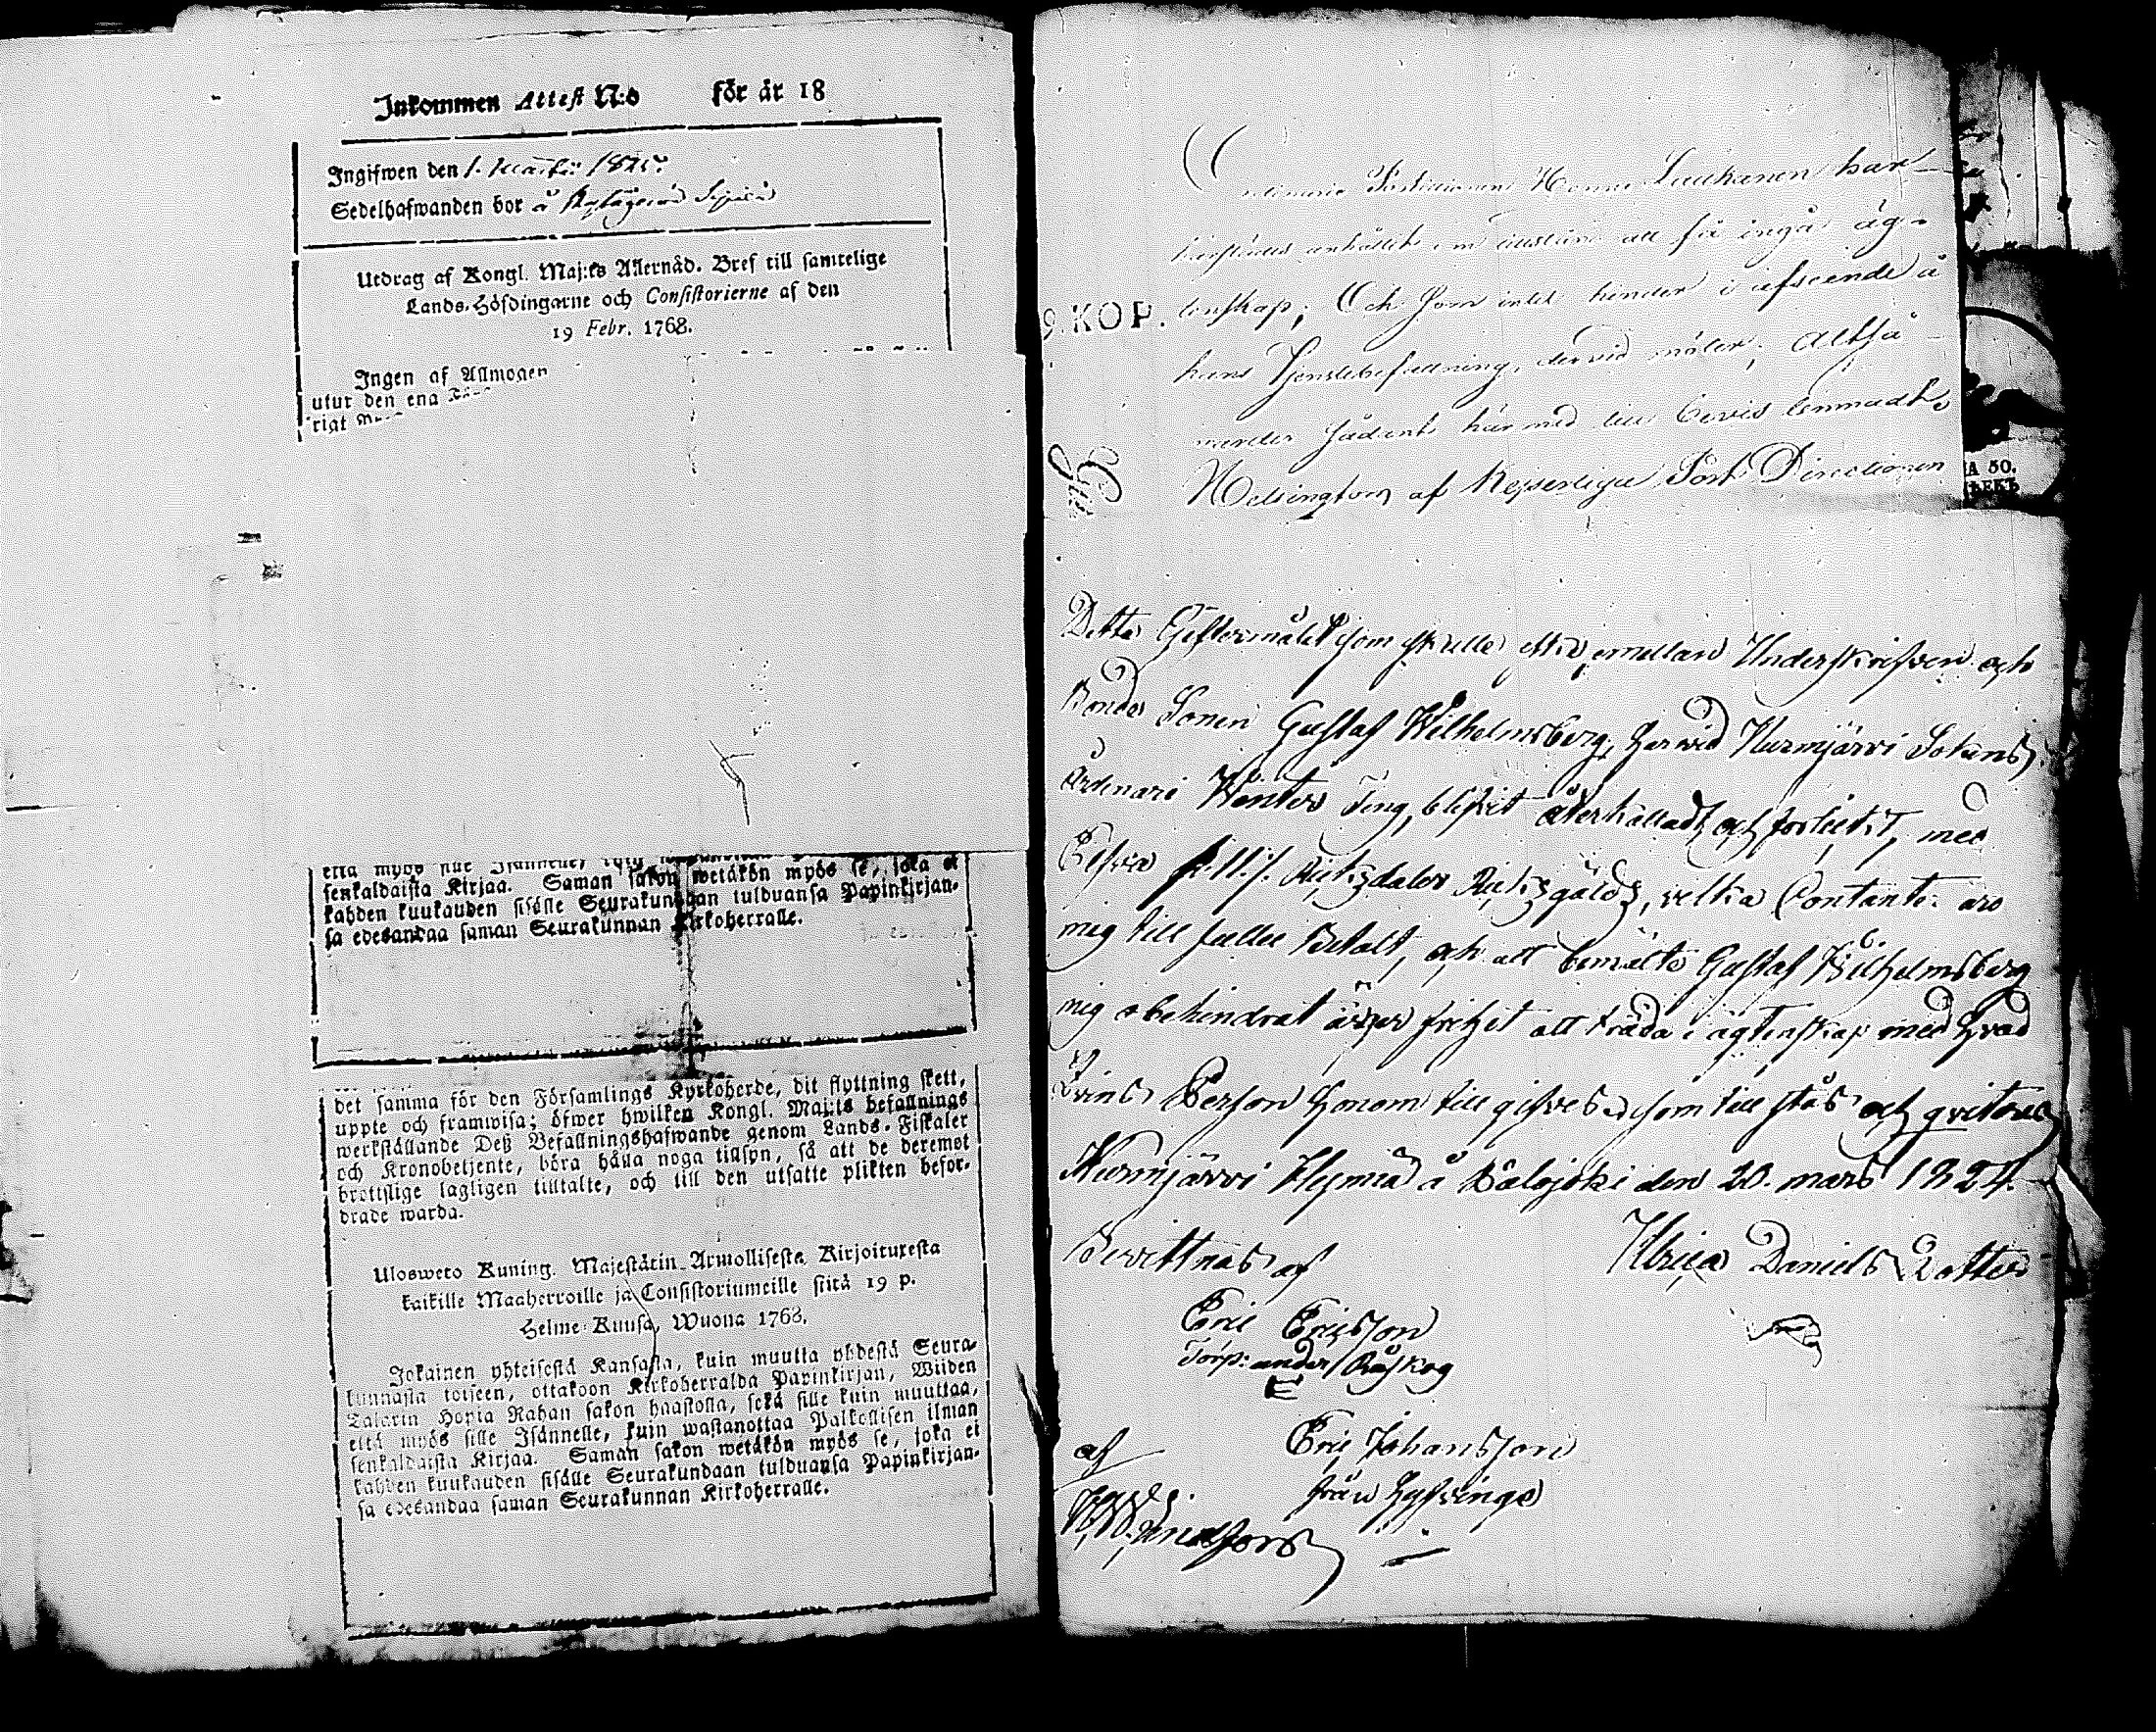 Inkommen Attest N:o för år 18
Ingifwen den 1. Martii 1825.
Sedelhafwanden bor å
Utdrag af Kongl. Maj:ts Allernåd. Bref till samtelige
Lands-Höfdingarne och Consistorierne af den
19 Febr. 1768.
Ingen af Allmogen
utur den ena
rigt
että myös sille Isännelle,
senkaldaista Kirjaa. Saman sakon wetäkön myös se, joka ei
kahden kuukauden sisälle Seurakundaan tulduansa Papinkirjan-
sa edesandaa saman Seurakunnan Kirkoherralle.
det samma för den Församlings Kyrkoherde, dit flyttning skett,
uppte och framwisa; öfwer hwilken Kongl. Maj:ts befallnings
werkställande Deß Befallningshafwande genom Lands-Fiskaler
och Kronobetjente, böra hålla noga tillsyn, så att de deremot
brottslige lagligen tilltalte, och till den utsatte plikten befor-
drade warda.
Ulosweto Kuning. Majestätin Armollisesta Kirjoituxesta
kaikille Maaherroille ja Consistoriumeille siitä 19 p.
Helme-Kuusa, Wuona 1768.
Jokainen yhteisestä Kansasta, kuin muutta yhdestä Seura-
kunnasta toiseen, ottakoon Kirkoherralda Papinkirjan, Wiiden
Talarin Hopia Rahan sakon haastolla, sekä sille kuin muuttaa,
että myös sille Isännelle, kuin wastanottaa Palkollisen ilman
senkaldaista Kirjaa. Saman sakon wetäkön myös se, joka ei
kahden kuukauden sisälle Seurakundaan tulduansa Papinkirjan-
sa edesandaa saman Seurakunnan Kirkoherralle.
Ordinarie Postillionen Luukanen har
härstädes anhållit om tillstånd att få ingå äg-
9. KOP. tenskap; Och som intet hinder i afseende å
hans Tjenstebefattning, dervid möter; Altså
varder sådant härmed till bevis lemnadt.
Helsingfors af Kejserliga Post Directionen
A 50.
ѢЕКЪ
Detta Giftermålet som skulle emellan Underskrifven och
Bonde Sonen Gustaf Wilhelmsberg, Nurmjärvi Sokens
Ordinarie Winter Ting, blifvit återkalladt och förlickt, med
Riksdaler Riksgälds, Contante äro
mig till fullo Betalt, och att bemälte Gustaf Wilhelmsberg
mig obehindrat äger frihet att träda i ägtenskap med hvad
Qvins Person honom till gifves, som till stås och qvitteras
Nurmjärvi den 20. mars 1824.
Bevittnas af
Ulrica Daniels Dotter
Eric Ericsson
Torp: under Råskog
E
af Eric Johansson
från